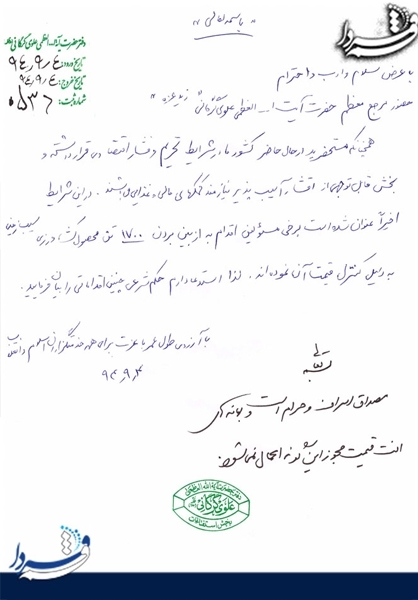 باسمه تعالی
دفتر حضرت آیت ا... العظمی علوی گرگانی
تاریخ ورود: ۹۴٫۹٫۴
تاریخ خروج: ۹۴٫۹٫۴
شماره ثبت: ۰۵۳۶
فردا
با عرض سلام و ادب و احترام
محضر مرجع معظم حضرت آیت ا... العظمی علوی گرگانی
همچنانکه مستحضرید در حال حاضر کشور ما در شرایط تحریم و فشار اقتصادی قرار داشته و
بخش قابل توجهی از اقشار آسیب پذیر نیازمند کمکهای مالی و غذایی می باشند. در این شرایط
اخیراً عنوان شده است برخی مسئولین اقدام به از بین بردن ۱۷۰۰ تن محصول کشاورزی سیب زمینی
به دلیل کنترل قیمت آن نموده اند. لذا استدعا دارم حکم شرعی چنین اقداماتی را بیان فرمایید.
با آرزوی طول عمر با عزت برای همه خدمتگزاران اسلام و انقلاب
۹۴٫۹٫۴
بسمه تعالی
مصداق اسراف و حرام است و بهانه ی
افت قیمت مجوز این گونه اعمال نمی شود.
دفتر حضرت آیة الله العظمی
علوی گرگانی
بخش استفتاءات
فردا